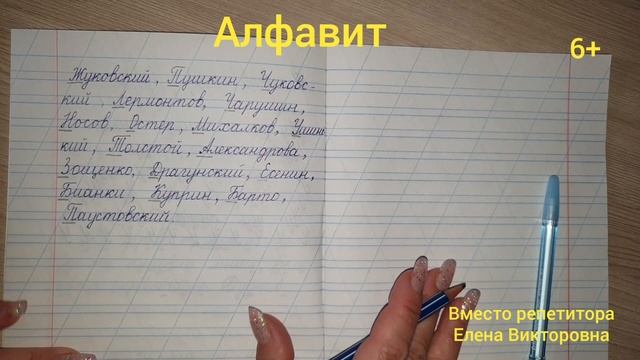 Алфавит
6+
Жуковский, Пушкин, Чуковс-
кий, Лермонтов, Чарушин,
Носов, Остер, Михалков, Ушинс
кий, Толстой, Александрова,
Зощенко, Драгунский, Есенин,
Бианки, Куприн, Барто,
Паустовский.
Вместо репетитора
Елена Викторовна